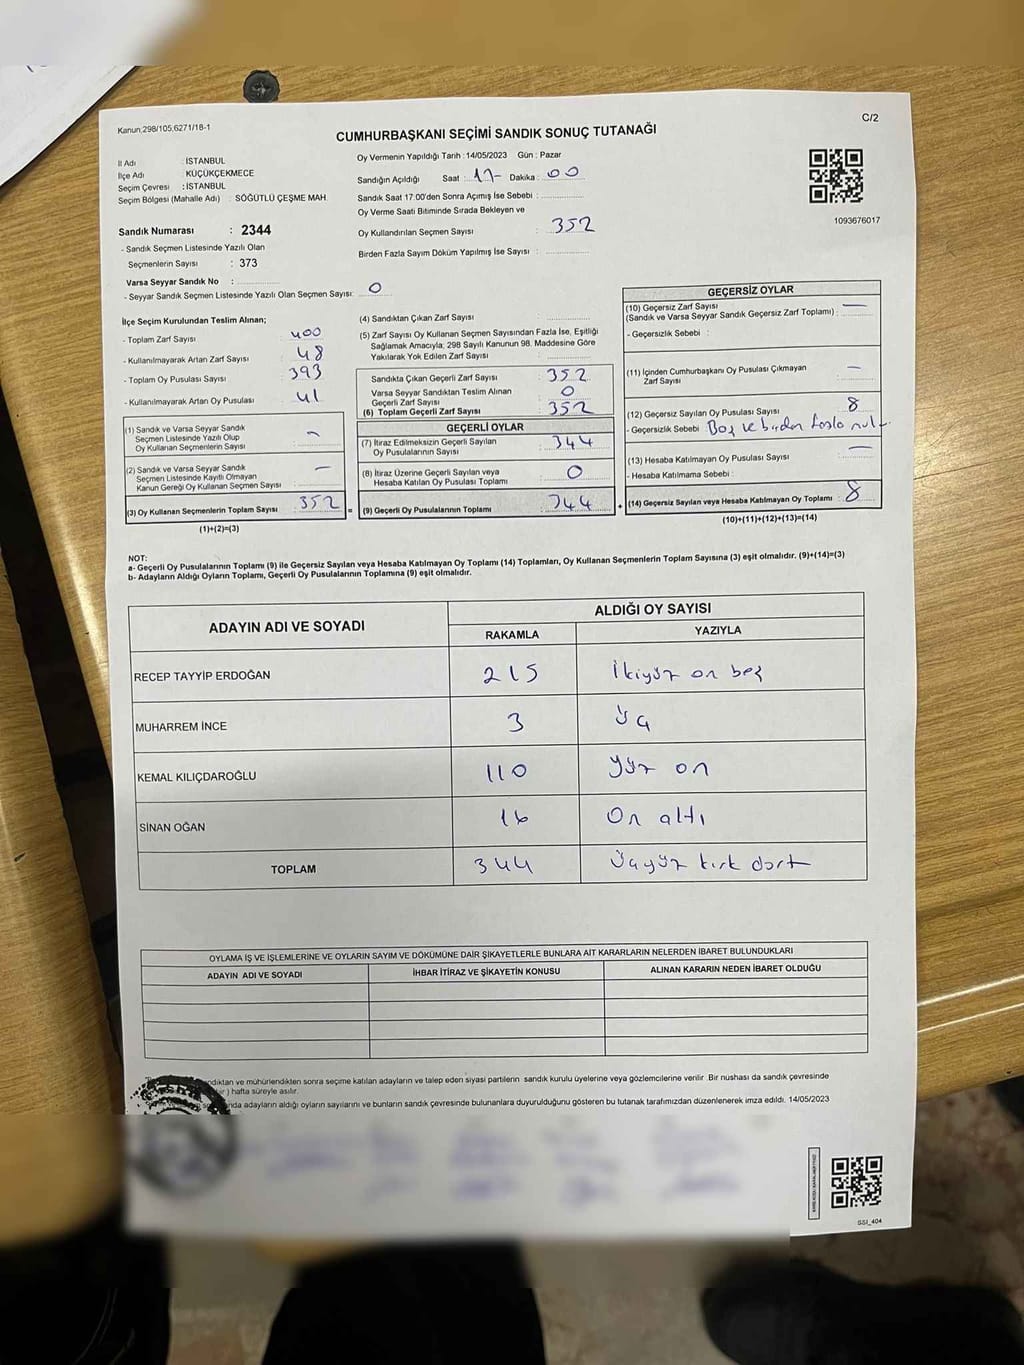 Kanun;298/105;6271/18-1
C/2
CUMHURBAŞKANI SEÇİMİ SANDIK SONUÇ TUTANAĞI
İl Adı : İSTANBUL
İlçe Adı : KÜÇÜKÇEKMECE
Seçim Çevresi : İSTANBUL
Seçim Bölgesi (Mahalle Adı) : SÖĞÜTLÜ ÇEŞME MAH.
Sandık Numarası : 2344
- Sandık Seçmen Listesinde Yazılı Olan
Seçmenlerin Sayısı : 373
Varsa Seyyar Sandık No :
- Seyyar Sandık Seçmen Listesinde Yazılı Olan Seçmen Sayısı: 0
Oy Vermenin Yapıldığı Tarih :14/05/2023 Gün : Pazar
Sandığın Açıldığı Saat : 17- Dakika : 00
Sandık Saat 17:00'den Sonra Açımış İse Sebebi :
Oy Verme Saati Bitiminde Sırada Bekleyen ve
Oy Kullandırılan Seçmen Sayısı : 352
Birden Fazla Sayım Döküm Yapılmış İse Sayısı :
1093676017
İlçe Seçim Kurulundan Teslim Alınan;
- Toplam Zarf Sayısı : 400
- Kullanılmayarak Artan Zarf Sayısı : 48
- Toplam Oy Pusulası Sayısı : 393
- Kullanılmayarak Artan Oy Pusulası : 41
(1) Sandık ve Varsa Seyyar Sandık
Seçmen Listesinde Yazılı Olup
Oy Kullanan Seçmenlerin Sayısı : -
(2) Sandık ve Varsa Seyyar Sandık
Seçmen Listesinde Kayıtlı Olmayan
Kanun Gereği Oy Kullanan Seçmen Sayısı : -
(3) Oy Kullanan Seçmenlerin Toplam Sayısı : 352 =
(1)+(2)=(3)
(4) Sandıktan Çıkan Zarf Sayısı :
(5) Zarf Sayısı Oy Kullanan Seçmen Sayısından Fazla İse, Eşitliği
Sağlamak Amacıyla; 298 Sayılı Kanunun 98. Maddesine Göre
Yakılarak Yok Edilen Zarf Sayısı :
Sandıkta Çıkan Geçerli Zarf Sayısı : 352
Varsa Seyyar Sandıktan Teslim Alınan
Geçerli Zarf Sayısı : 0
(6) Toplam Geçerli Zarf Sayısı : 352
GEÇERLİ OYLAR
(7) İtiraz Edilmeksizin Geçerli Sayılan
Oy Pusulalarının Sayısı : 344
(8) İtiraz Üzerine Geçerli Sayılan veya
Hesaba Katılan Oy Pusulası Toplamı : 0
(9) Geçerli Oy Pusulalarının Toplamı : 344 +
GEÇERSİZ OYLAR
(10) Geçersiz Zarf Sayısı
(Sandık ve Varsa Seyyar Sandık Geçersiz Zarf Toplamı) : -
- Geçersizlik Sebebi :
(11) İçinden Cumhurbaşkanı Oy Pusulası Çıkmayan
Zarf Sayısı : -
(12) Geçersiz Sayılan Oy Pusulası Sayısı : 8
- Geçersizlik Sebebi : Boş ve birden fazla
(13) Hesaba Katılmayan Oy Pusulası Sayısı : -
- Hesaba Katılmama Sebebi :
(14) Geçersiz Sayılan veya Hesaba Katılmayan Oy Toplamı : 8
(10)+(11)+(12)+(13)=(14)
NOT:
a- Geçerli Oy Pusulalarının Toplamı (9) ile Geçersiz Sayılan veya Hesaba Katılmayan Oy Toplamı (14) Toplamları, Oy Kullanan Seçmenlerin Toplam Sayısına (3) eşit olmalıdır. (9)+(14)=(3)
b- Adayların Aldığı Oyların Toplamı, Geçerli Oy Pusulalarının Toplamına (9) eşit olmalıdır.
ADAYIN ADI VE SOYADI
ALDIĞI OY SAYISI
RAKAMLA YAZIYLA
RECEP TAYYİP ERDOĞAN 215 İkiyüz on beş
MUHARREM İNCE 3 Üç
KEMAL KILIÇDAROĞLU 110 Yüz on
SİNAN OĞAN 16 On altı
TOPLAM 344 Üçyüz kırk dört
OYLAMA İŞ VE İŞLEMLERİNE VE OYLARIN SAYIM VE DÖKÜMÜNE DAİR ŞİKAYETLERLE BUNLARA AİT KARARLARIN NELERDEN İBARET BULUNDUKLARI
ADAYIN ADI VE SOYADI İHBAR İTİRAZ VE ŞİKAYETİN KONUSU ALINAN KARARIN NEDEN İBARET OLDUĞU
ve mühürlendikten sonra seçime katılan adayların ve talep eden siyasi partilerin sandık kurulu üyelerine veya gözlemcilerine verilir .Bir nushası da sandık çevresinde
) hafta süreyle asılır.
adayların aldığı oyların sayılarını ve bunların sandık çevresinde bulunanlara duyurulduğunu gösteren bu tutanak tarafımızdan düzenlenerek imza edildi. 14/05/2023
SSI_404